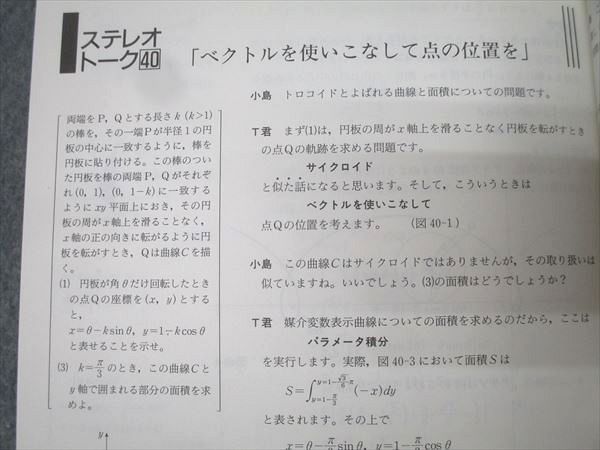 ステレオ
トーク40
「ベクトルを使いこなして点の位置を」
両端をP，Qとする長さk (k>1)
の棒を，その一端Pが半径1の円
板の中心に一致するように，棒を
円板に貼り付ける。この棒のつい
た円板を棒の両端P，Qがそれぞ
れ(0, 1)，(0, 1−k)に一致する
ようにxy平面上におき，その円
板の周がx軸上を滑ることなく，
x軸の正の向きに転がるように円
板を転がすとき，Qは曲線Cを描
く。
(1) 円板が角θだけ回転したとき
の点Qの座標を(x, y)とする
と，
x=θ−k sinθ, y=1−k cosθ
と表せることを示せ。
(3) k=π/3のとき，この曲線Cと
y軸で囲まれる部分の面積を求
めよ。
y
小島 トロコイドとよばれる曲線と面積についての問題です。
T君 まず(1)は，円板の周がx軸上を滑ることなく円板を転がすとき
の点Qの軌跡を求める問題です。
サイクロイド
と似た話になると思います。そして，こういうときは
ベクトルを使いこなして
点Qの位置を考えます。 (図40-1)
小島 この曲線Cはサイクロイドではありませんが，その取り扱いは
似ていますね。いいでしょう。(3)の面積はどうでしょうか？
T君 媒介変数表示曲線についての面積を求めるのだから，ここは
パラメータ積分
を実行します。実際，図40-3において面積Sは
S=∫_{y=1−π/3}^{y=1−√3/6 π}(−x)dy
と表されます。その上で
x=θ−π/3 sinθ, y=1−π/3 cosθ